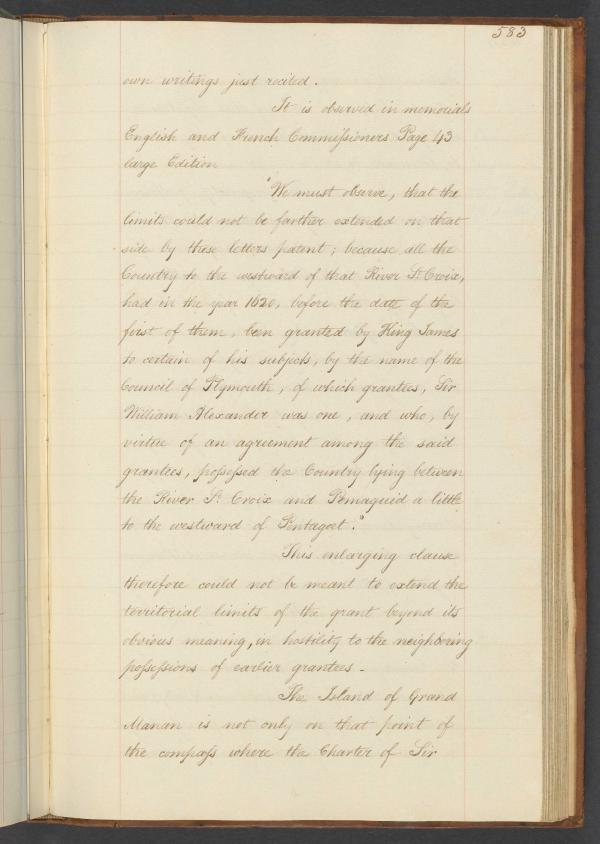 583
own writings just recited.
It is observed in memorials
English and French Commissioners Page 43
large Edition
"We must observe, that the
limits could not be farther extended on that
side by these letters patent; because all the
Country to the westward of that River St Croix,
had in the year 1620, before the date of the
first of them, been granted by King James
to certain of his subjects, by the name of the
Council of Plymouth, of which grantees, Sir
William Alexander was one, and who, by
virtue of an agreement among the said
grantees, possessed the Country lying between
the River St. Croix and Pemaquid a little
to the westward of Pentagoet."
This enlarging clause
therefore could not be meant to extend the
territorial limits of the grant beyond its
obvious meaning, in hostility to the neighboring
possessions of earlier grantees -
The Island of Grand
Manan is not only on that point of
the compass where the Charter of Sir